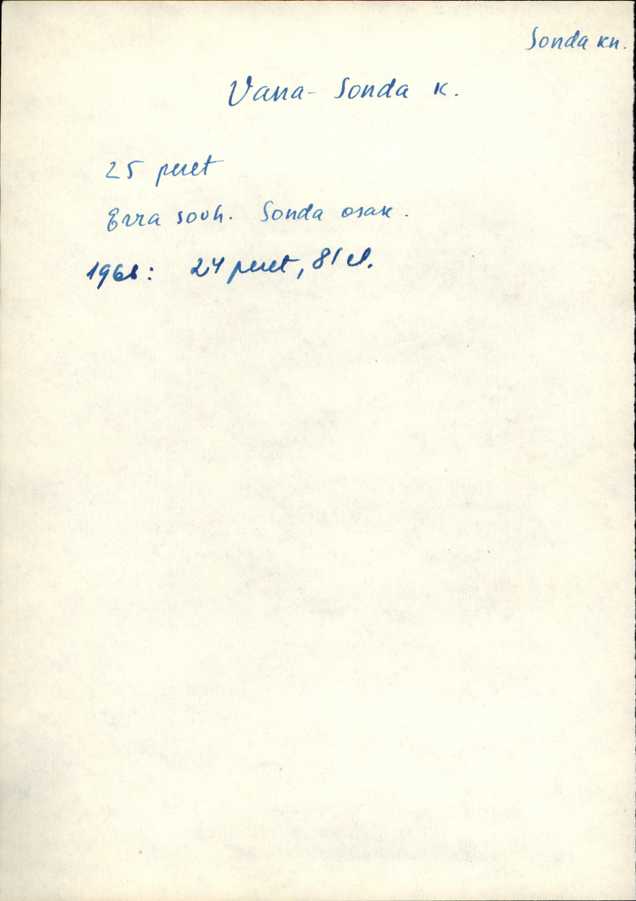 Sonda kn.
Vana-Sonda k.
25 peret
Erra sovh. Sonda osak.
1968: 24 peret, 81 el.